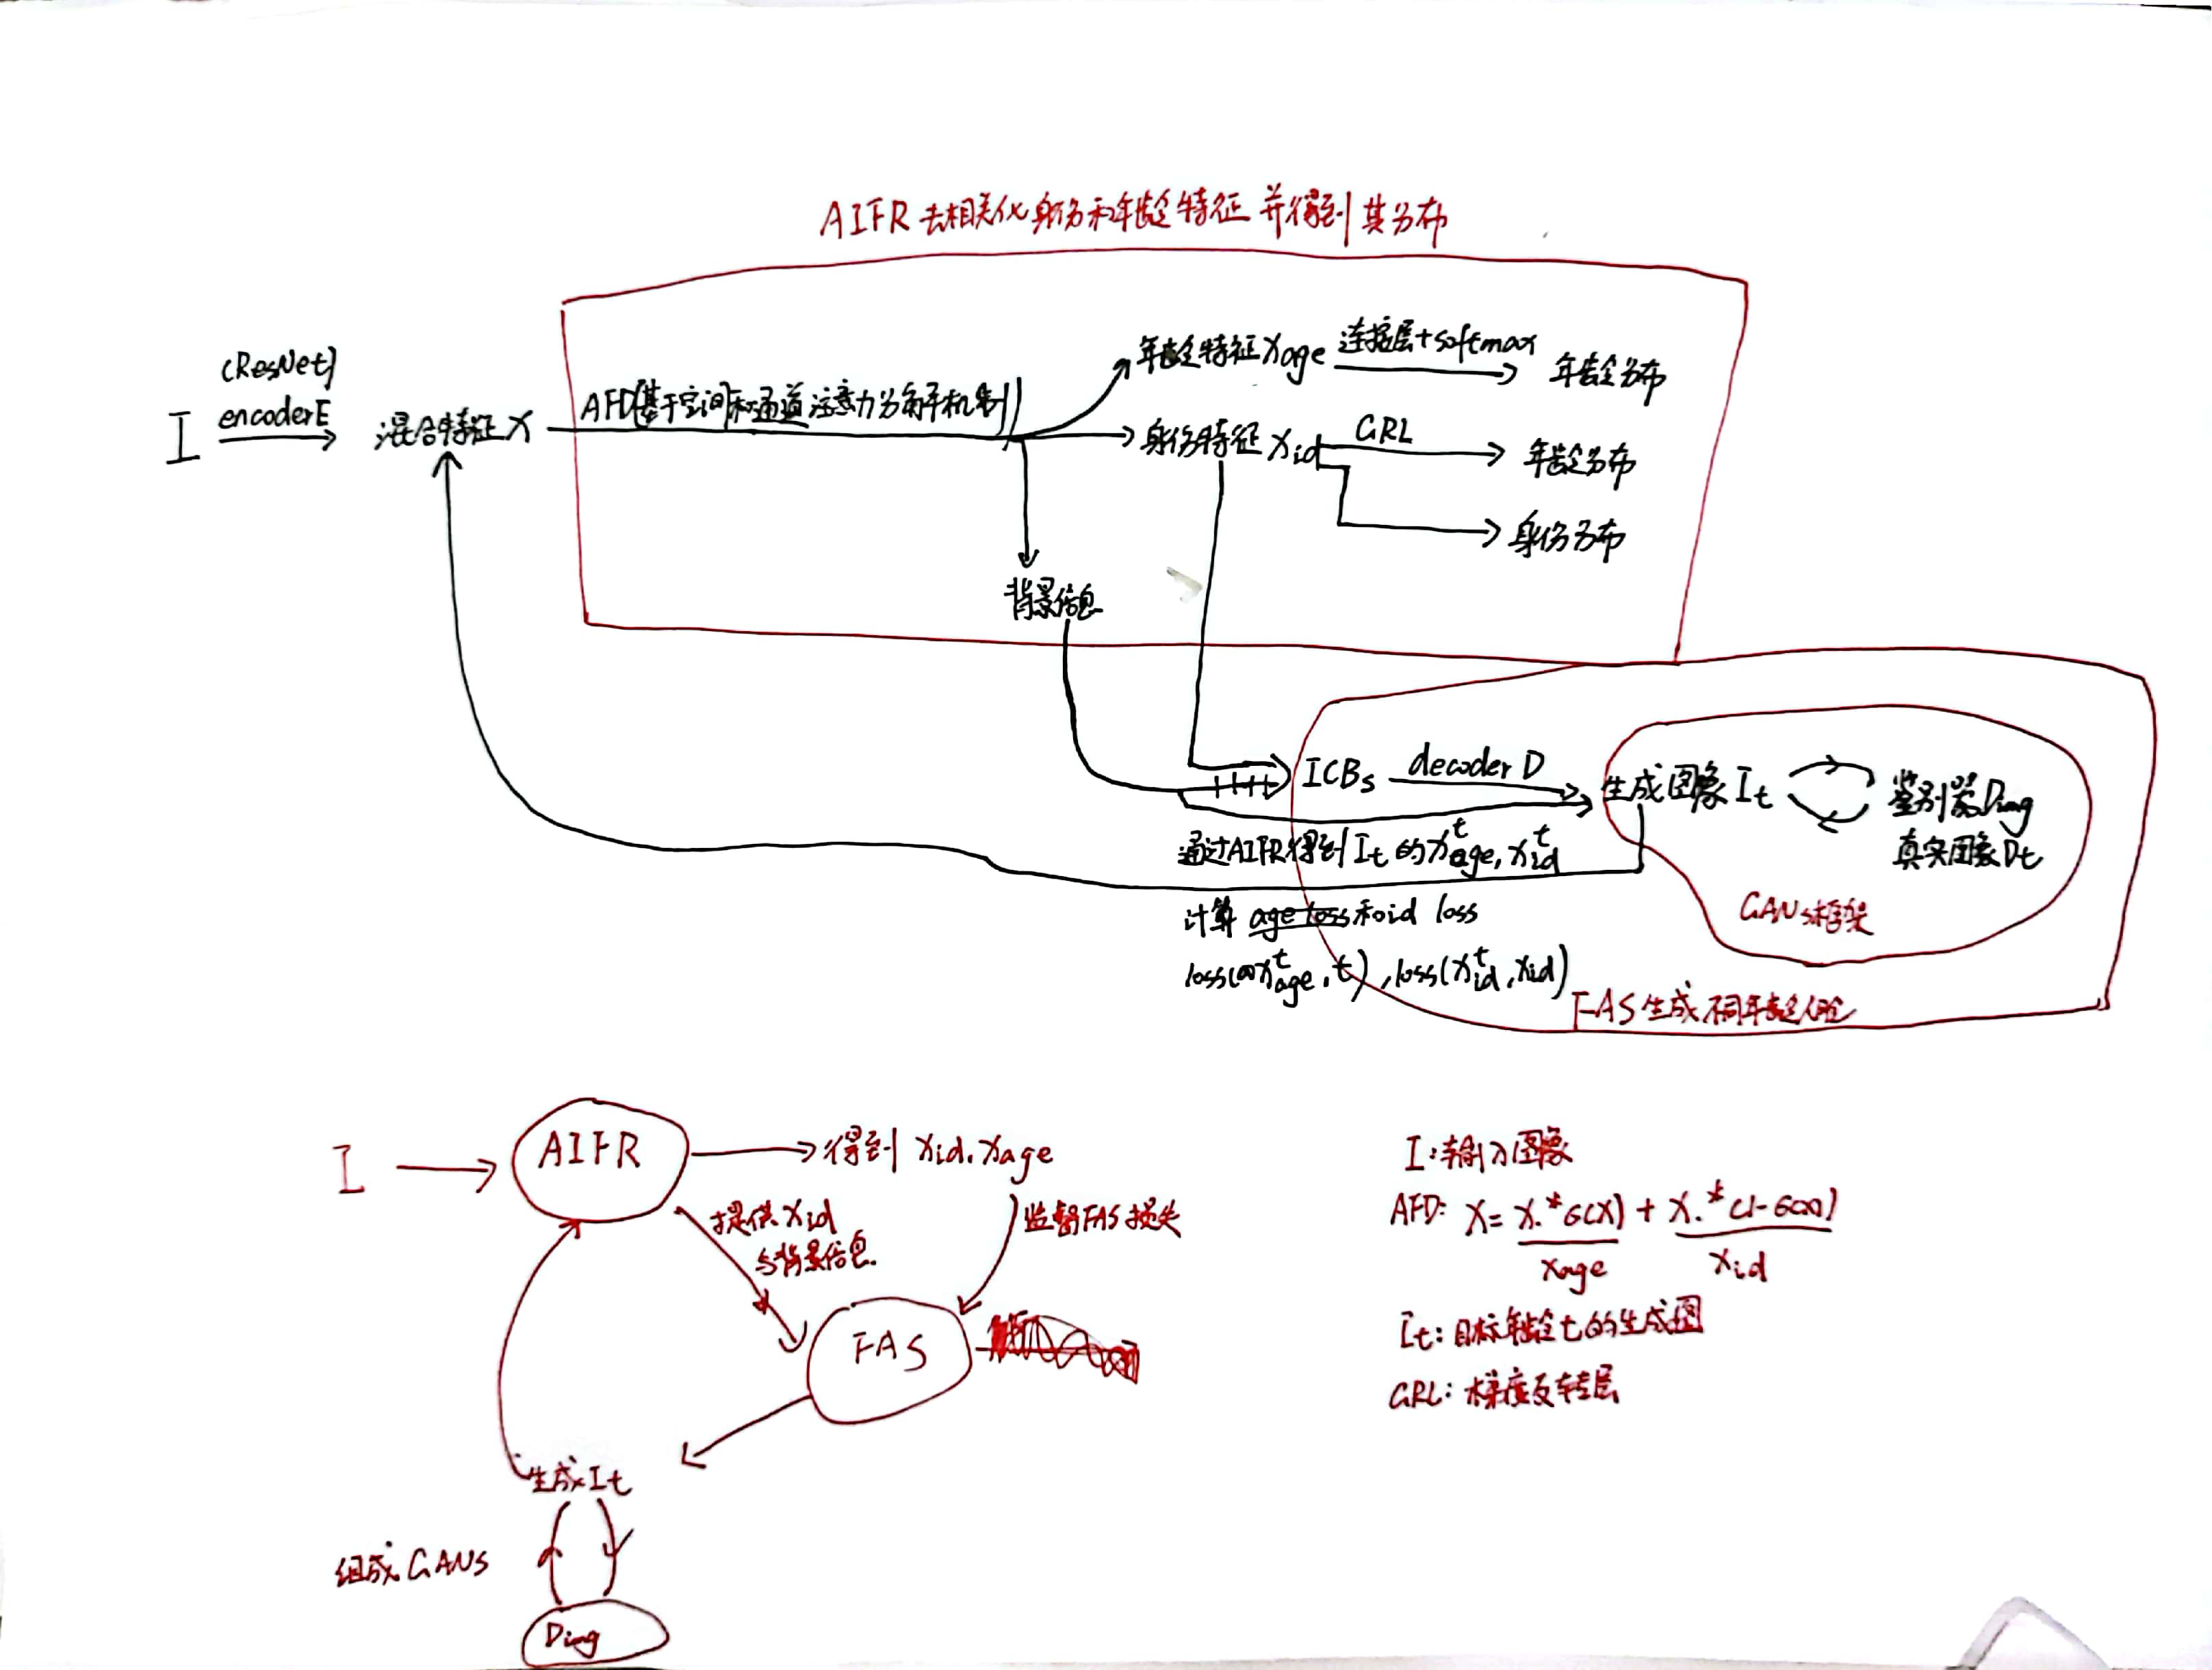 AIFR 去相关化身份和年龄特征 并得到其分布
(ResNet)
I encoderE 混合特征 X AFD(基于空间和通道注意力分解机制)
年龄特征 Xage 连接层+softmax 年龄分布
身份特征 Xid GRL 年龄分布
身份分布
背景信息
ICBs decoder D 生成图像 It 鉴别器 Dimg
真实图像 Dt
通过AIFR得到 It 的 x^t_age, x^t_id
GANs框架
计算 age loss 和 id loss
loss(x^t_age, t), loss(x^t_id, xid)
FAS 生成不同年龄人脸
I AIFR 得到 xid, xage
提供 xid
与背景信息
监督FAS损失
FAS
生成 It
组成 GANs
Dimg
I: 输入图像
AFD: X = X.*G(X) + X.*(1-G(X))
xage xid
It: 目标年龄t的生成图
GRL: 梯度反转层